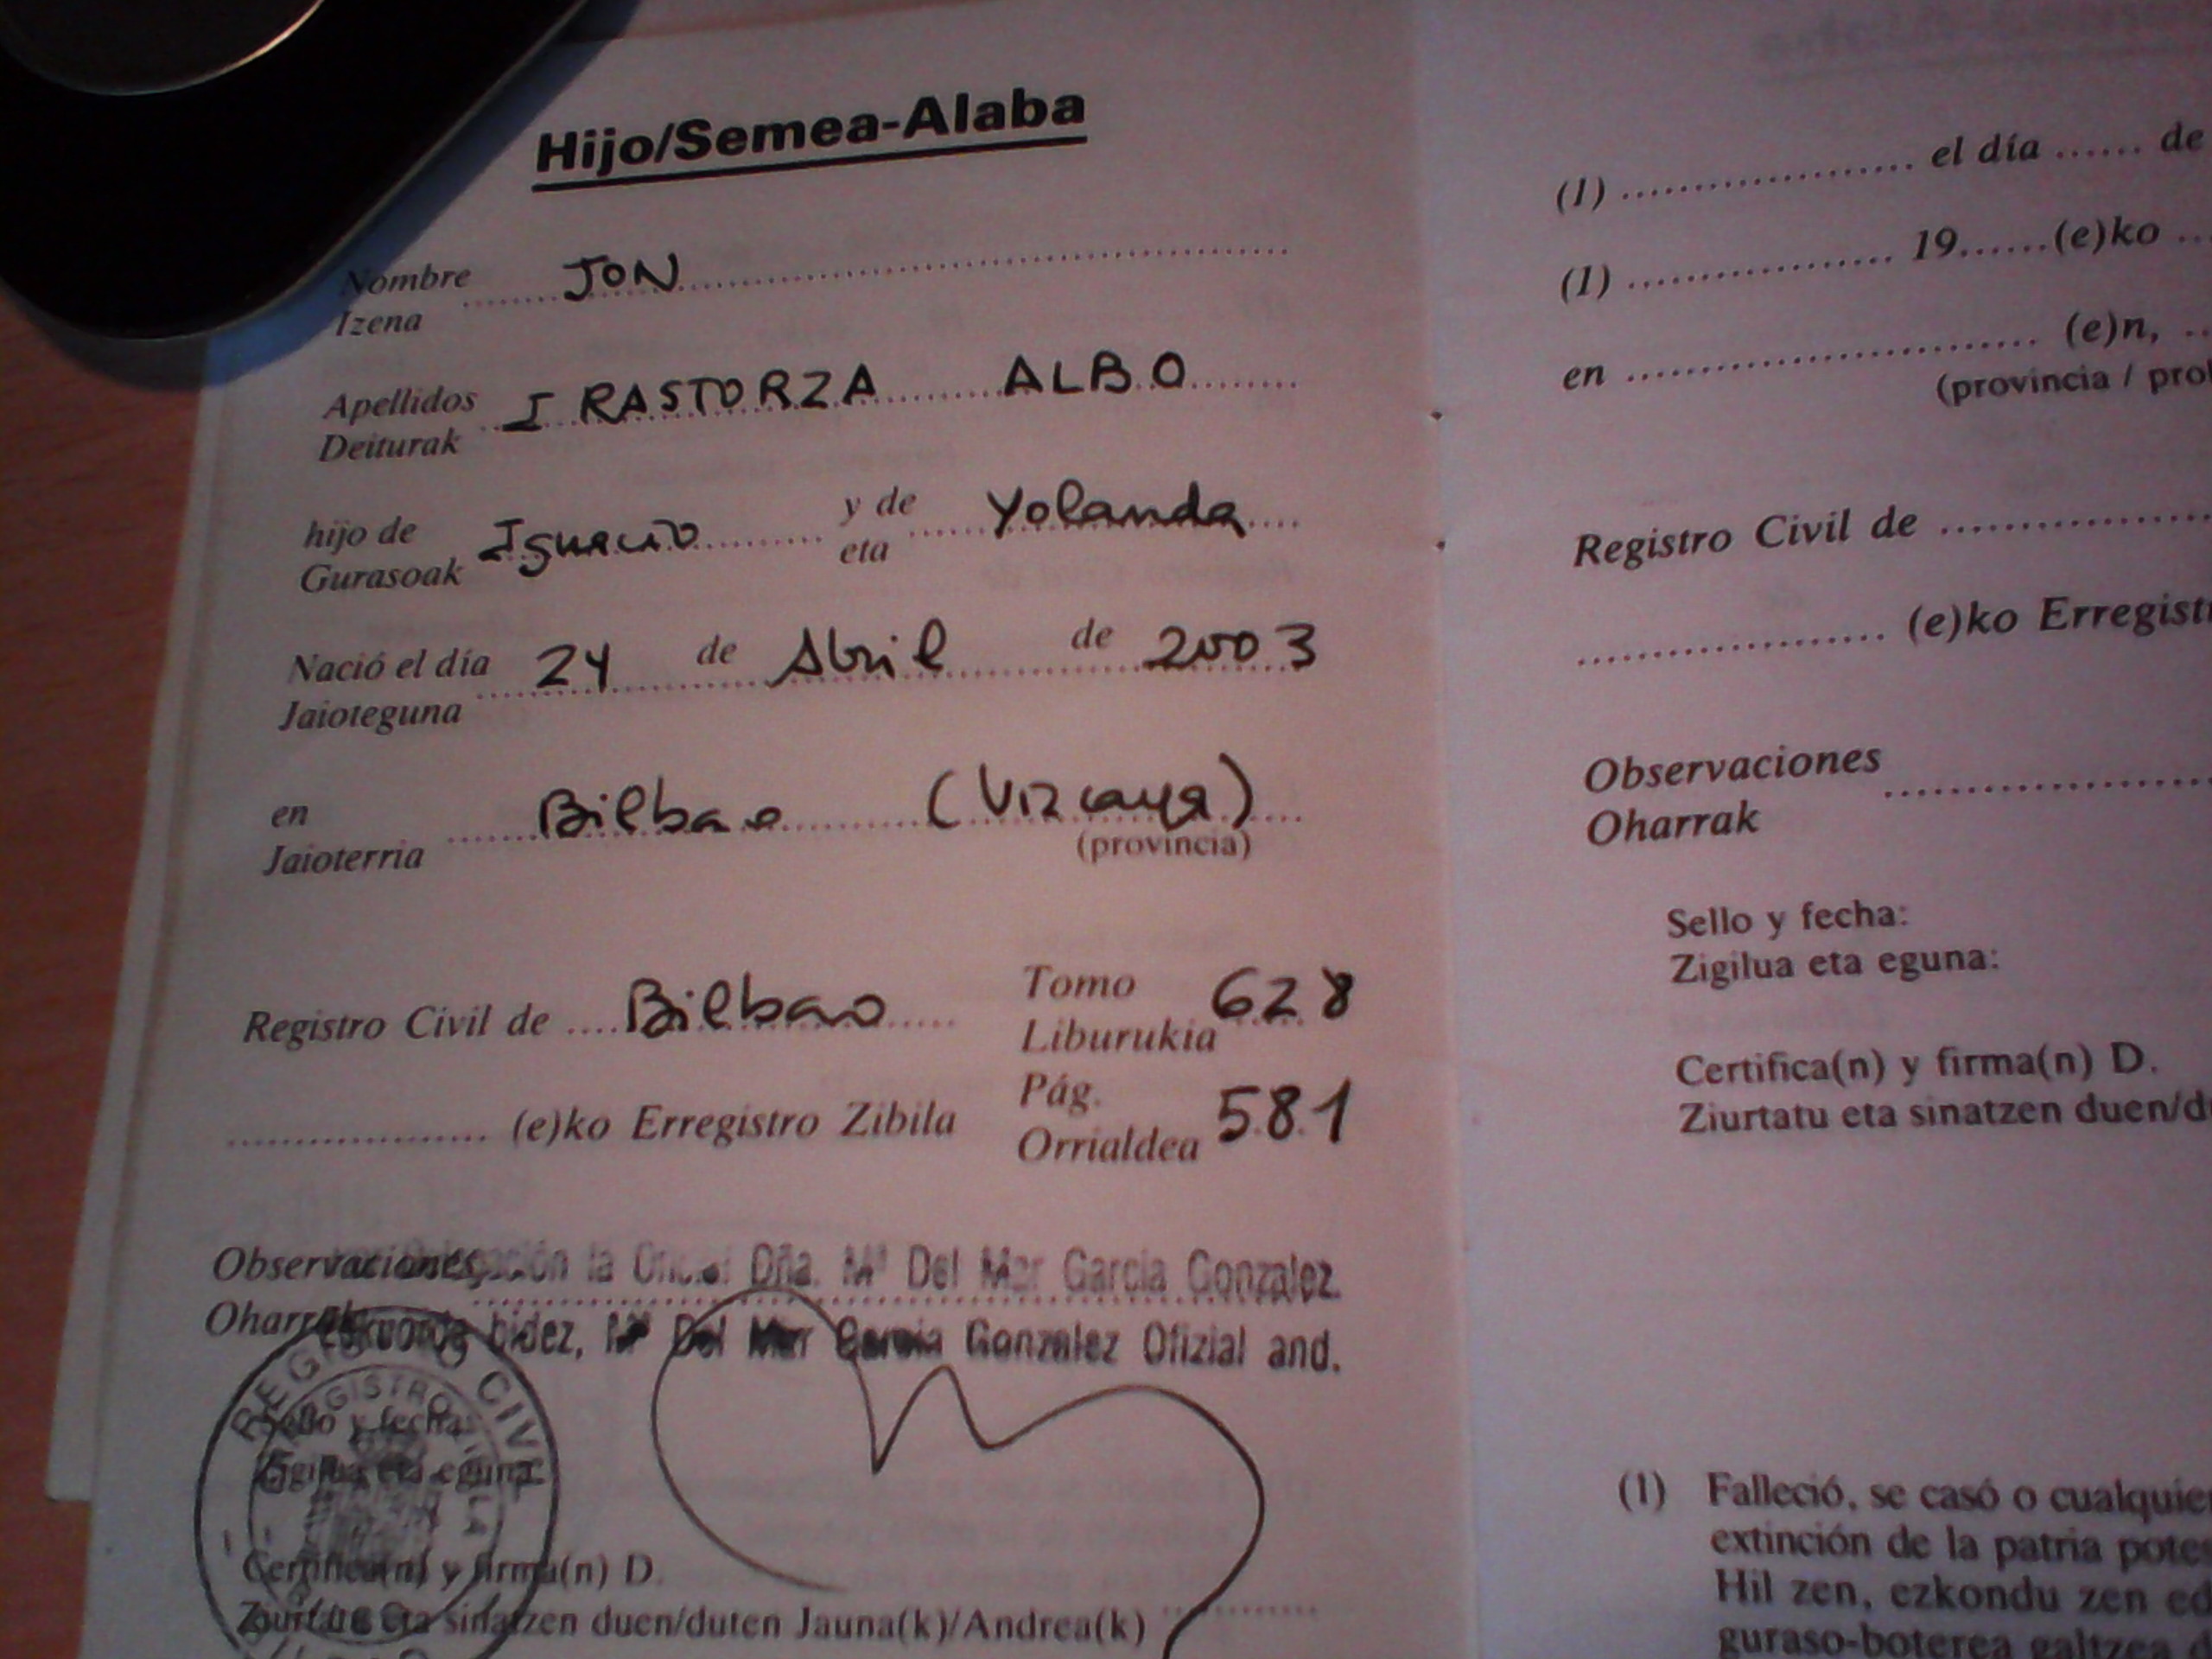 Hijo/Semea-Alaba
Nombre JON
Izena
Apellidos IRASTORZA ALBO
Deiturak
hijo de Ignacio y de Yolanda
Gurasoak eta
Nació el día 24 de Abril de 2003
Jaioteguna
en Bilbao (Vizcaya)
Jaioterria (provincia)
Registro Civil de Bilbao Tomo 628
Liburukia
(e)ko Erregistro Zibila Pág. 581
Orrialdea
Observaciones la Oficial Dña. Mª Del Mar Garcia Gonzalez.
Oharrak bidez, Mª Del Mar Garcia Gonzalez Ofizial and.
REGISTRO CIVIL
Sello y fecha:
Zigilua eta eguna:
Certifica(n) y firma(n) D.
Ziurtatu eta sinatzen duen/duten Jauna(k)/Andrea(k)
(1) el día de
(1) 19 (e)ko
en (e)n,
(provincia /
Registro Civil de
(e)ko
Observaciones
Oharrak
Sello y fecha:
Zigilua eta eguna:
Certifica(n) y firma(n) D.
Ziurtatu eta sinatzen
(1) Falleció, se casó o
extinción de la patria
Hil zen, ezkondu zen
guraso-boterea galtzea